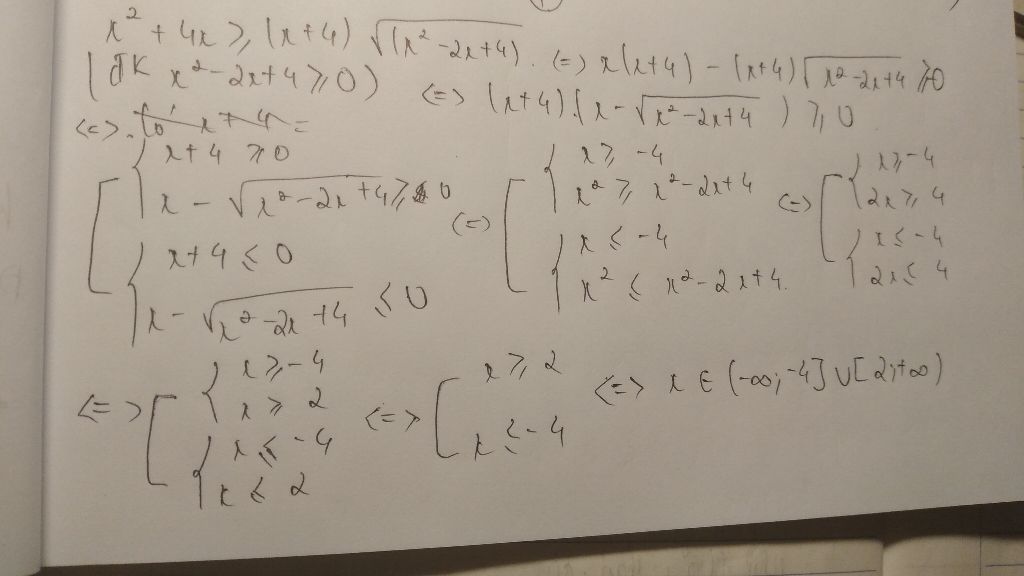 x² + 4x ≥ (x+4) √(x²-2x+4).
(ĐK x²-2x+4 ≥ 0) <=> x(x+4) - (x+4)√x²-2x+4 ≥0
<=> (x+4).(x - √x²-2x+4 ) ≥ 0
<=>.
[ { x+4 ≥ 0
x - √x²-2x+4 ≥ 0
{ x+4 ≤ 0
x - √x²-2x+4 ≤ 0
<=> [ { x ≥ -4
x² ≥ x²-2x+4
{ x ≤ -4
x² ≤ x²-2x+4.
<=> [ { x ≥ -4
2x ≥ 4
{ x ≤ -4
2x ≤ 4
<=> [ { x ≥ -4
x ≥ 2
{ x ≤ -4
x ≤ 2
<=> [ x ≥ 2
x ≤ -4
<=> x ∈ (-∞;-4] ∪ [2;+∞)